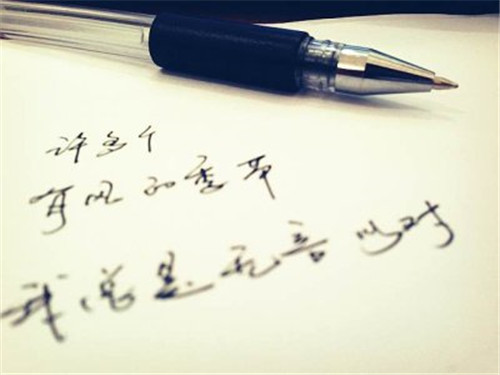 许多个
有风的季节
我总是无言以对